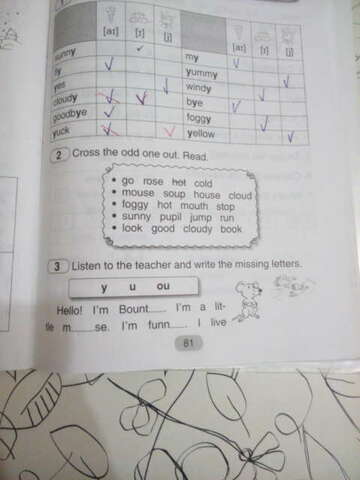 [aɪ] [ɪ] [j] [aɪ] [ɪ] [j]
sunny my
fly yummy
yes windy
cloudy bye
goodbye foggy
yuck yellow
2 Cross the odd one out. Read.
• go rose hot cold
• mouse soup house cloud
• foggy hot mouth stop
• sunny pupil jump run
• look good cloudy book
3 Listen to the teacher and write the missing letters.
y u ou
Hello! I'm Bount..... I'm a lit-
tle m.....se. I'm funn..... I live
81